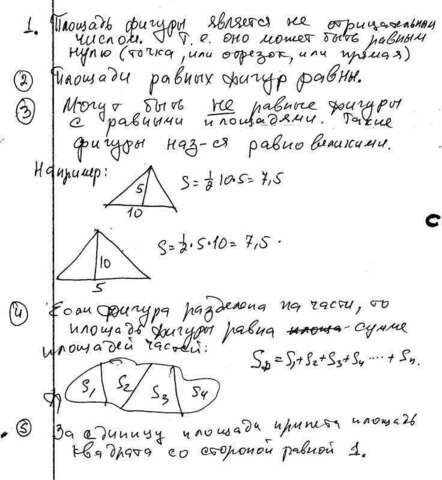 1. Площадь фигуры является не отрицательным
числом. Т. е. оно может быть равным
нулю (точка, или отрезок, или прямая)
2 Площади равных фигур равны.
3 Могут быть не равные фигуры
с равными площадями. Такие
фигуры наз-ся равновеликими.
Например:
5
10
S = 1/2 10·5 = 7,5
10
5
S = 1/2·5·10 = 7,5.
с
4 Если фигура разделена на части, то
площадь фигуры равна площа- сумме
площадей частей:
Sф = S1+S2+S3+S4 .... + Sn.
S1 S2 S3 S4
5 За единицу площади принята площадь
квадрата со стороной равной 1.